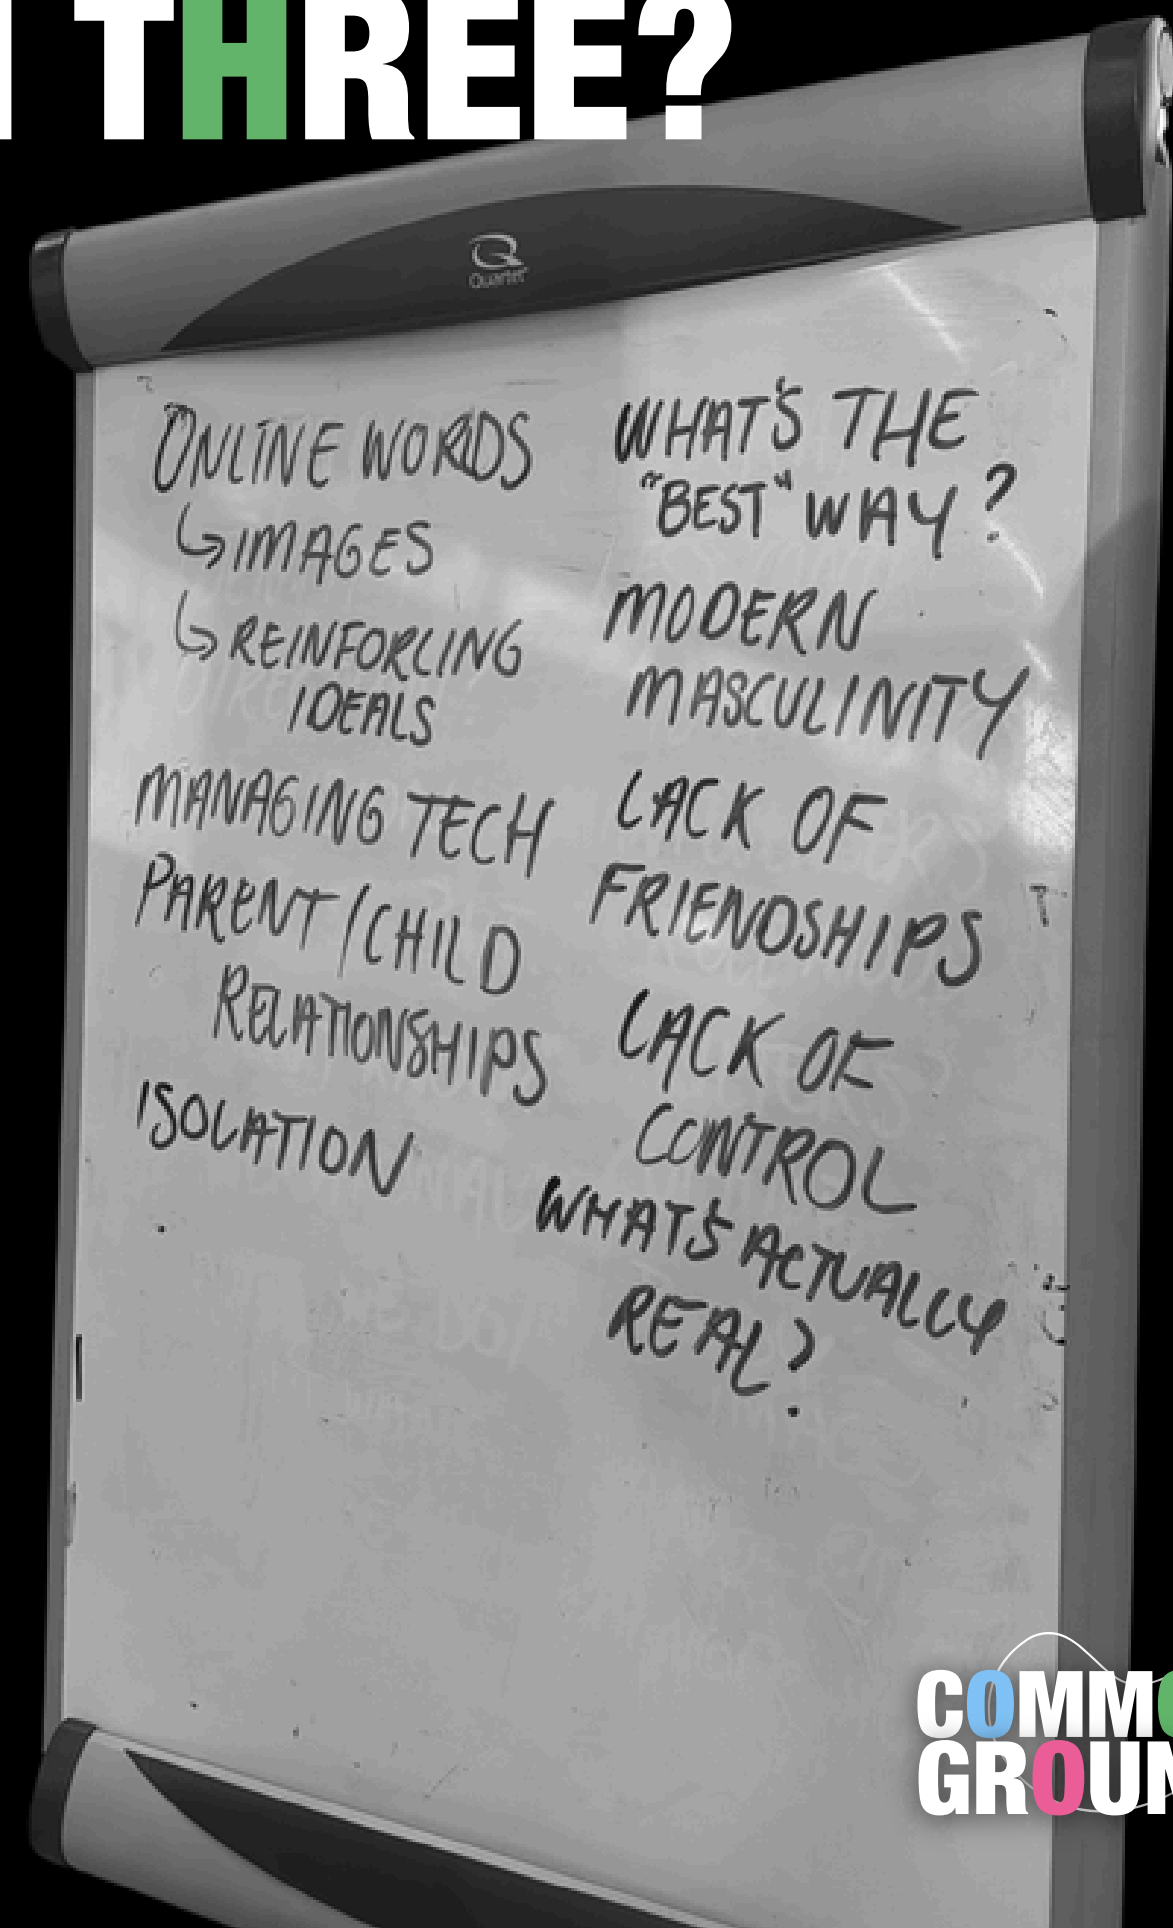 THREE?
Quartet
ONLINE WORDS
↳IMAGES
↳REINFORCING
IDEALS
MANAGING TECH
PARENT/CHILD
RELATIONSHIPS
ISOLATION
WHAT'S THE
"BEST" WAY?
MODERN
MASCULINITY
LACK OF
FRIENDSHIPS
LACK OF
CONTROL
WHAT'S ACTUALLY
REAL?
COMMO
GROUN